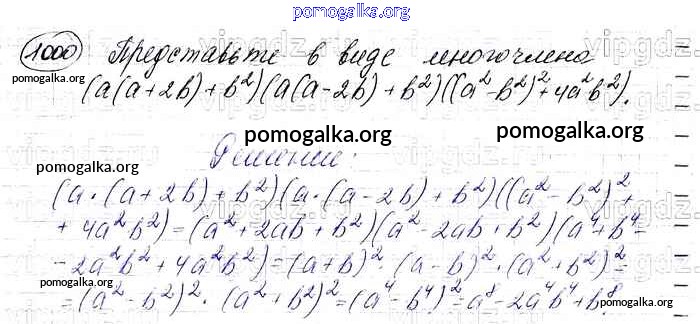 pomogalka.org
1000 Представьте в виде многочлена
pomogalka.org
(a(a+2b)+b²)(a(a-2b)+b²)((a²-b²)²+4a²b²).
pomogalka.org pomogalka.org
Решение:
pomogalka.org
(a·(a+2b)+b²)(a·(a-2b)+b²)((a²-b²)²+
+4a²b²)=(a²+2ab+b²)(a²-2ab+b²)(a⁴+b⁴-
-2a²b²+4a²b²)=(a+b)²·(a-b)²·(a²+b²)²=
=(a²-b²)²·(a²+b²)²=(a⁴-b⁴)²=a⁸-2a⁴b⁴+b⁸.
pomogalka.org